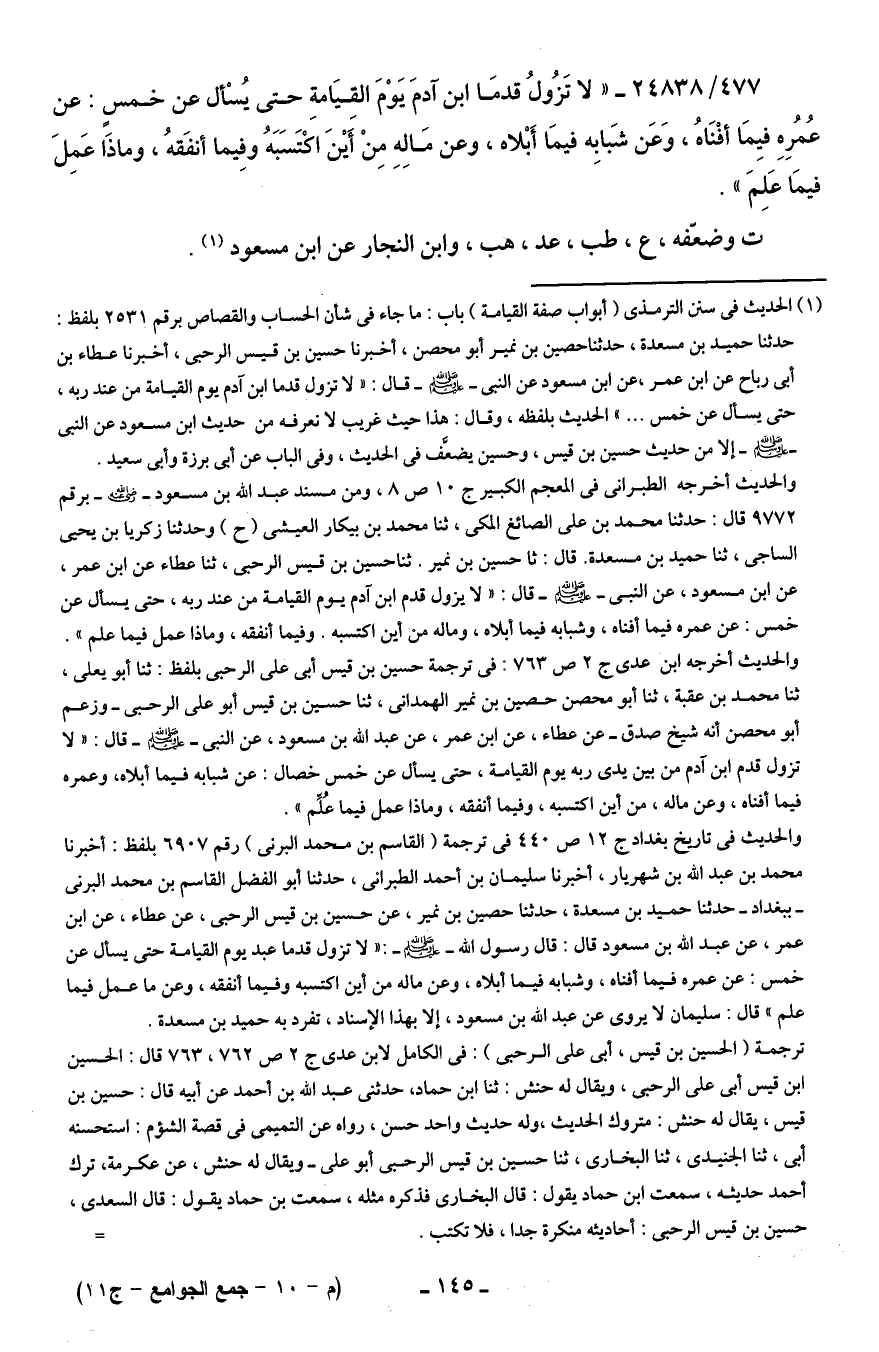 ٢٤٨٣٨/٤٧٧ ـ « لا تَزُولُ قدمَا ابن آدمَ يَوْمَ القِيَامةِ حتى يُسْأل عن خمسٍ : عن
عُمُرِهِ فِيمَا أفْنَاهُ ، وَعَن شبَابِه فيمَا أَبْلاه ، وعن مَالِهِ مِنْ أَيْنَ اكْتَسَبَهُ وفِيما أنفَقهُ ، وماذَا عَمِلَ
فيمَا عَلِمَ » .
ت وضعّفه ، ع ، طب ، عد ، هب ، وابن النجار عن ابن مسعود (١) .
(١) الحديث فى سنن الترمذى ( أبواب صفة القيامة ) باب : ما جاء فى شأن الحساب والقصاص برقم ٢٥٣١ بلفظ :
حدثنا حميد بن مسعدة ، حدثناحصين بن نمير أبو محصن ، أخبرنا حسين بن قيس الرحبى ، أخبرنا عطاء بن
أبى رباح عن ابن عمر ،عن ابن مسعود عن النبى ـ ﷺ ـ قال : « لا تزول قدما ابن آدم يوم القيامة من عند ربه ،
حتى يسأل عن خمس ... » الحديث بلفظه ، وقال : هذا حيث غريب لا نعرفه من حديث ابن مسعود عن النبى
ـ ﷺ ـ إلا من حديث حسين بن قيس ، وحسين يضعَّف فى الحديث ، وفى الباب عن أبى برزة وأبى سعيد .
والحديث أخرجه الطبرانى فى المعجم الكبير ج ١٠ ص ٨ ، ومن مسند عبد الله بن مسعود ـ رضي الله عنه ـ برقم
٩٧٧٢ قال : حدثنا محمد بن على الصائغ المكى ، ثنا محمد بن بيكار العيشى ( ح ) وحدثنا زكريا بن يحيى
الساجى ، ثنا حميد بن مسعدة. قال : ثا حسين بن نمير . ثناحسين بن قيس الرحبى ، ثنا عطاء عن ابن عمر ،
عن ابن مسعود ، عن النبى ـ ﷺ ـ قال : « لا يزول قدم ابن آدم يوم القيامة من عند ربه ، حتى يسأل عن
خمس : عن عمره فيما أفناه ، وشبابه فيما أبلاه ، وماله من أين اكتسبه . وفيما أنفقه ، وماذا عمل فيما علم » .
والحديث أخرجه ابن عدى ج ٢ ص ٧٦٣ : فى ترجمة حسين بن قيس أبى على الرحبى بلفظ : ثنا أبو يعلى ،
ثنا محمد بن عقبة ، ثنا أبو محصن حصين بن نمير الهمدانى ، ثنا حسين بن قيس أبو على الرحبى ـ وزعم
أبو محصن أنه شيخ صدق ـ عن عطاء ، عن ابن عمر ، عن عبد الله بن مسعود ، عن النبى ـ ﷺ ـ قال : « لا
تزول قدم ابن آدم من بين يدى ربه يوم القيامة ، حتى يسأل عن خمس خصال : عن شبابه فيما أبلاه، وعمره
فيما أفناه ، وعن ماله ، من أين اكتسبه ، وفيما أنفقه ، وماذا عمل فيما عُلِّم » .
والحديث فى تاريخ بغداد ج ١٢ ص ٤٤٠ فى ترجمة ( القاسم بن محمد البرنى ) رقم ٦٩٠٧ بلفظ : أخبرنا
محمد بن عبد الله بن شهريار ، أخبرنا سليمان بن أحمد الطبرانى ، حدثنا أبو الفضل القاسم بن محمد البرنى
ـ ببغداد ـ حدثنا حميد بن مسعدة ، حدثنا حصين بن نمير ، عن حسين بن قيس الرحبى ، عن عطاء ، عن ابن
عمر ، عن عبد الله بن مسعود قال : قال رسول الله ـ ﷺ ـ :« لا تزول قدما عبد يوم القيامة حتى يسأل عن
خمس : عن عمره فيما أفناه ، وشبابه فيما أبلاه ، وعن ماله من أين اكتسبه وفيما أنفقه ، وعن ما عمل فيما
علم » قال : سليمان لا يروى عن عبد الله بن مسعود ، إلا بهذا الإسناد ، تفرد به حميد بن مسعدة .
ترجمة ( الحسين بن قيس ، أبى على الرحبى ) : فى الكامل لابن عدى ج ٢ ص ٧٦٢ ، ٧٦٣ قال : الحسين
ابن قيس أبى على الرحبى ، ويقال له حنش : ثنا ابن حماد، حدثنى عبد الله بن أحمد عن أبيه قال : حسين بن
قيس ، يقال له حنش : متروك الحديث ،وله حديث واحد حسن ، رواه عن التميمى فى قصة الشؤم : استحسنه
أبى ، ثنا الجنيدى ، ثنا البخارى ، ثنا حسين بن قيس الرحبى أبو على ـ ويقال له حنش ، عن عكرمة، ترك
أحمد حديثه ، سمعت ابن حماد يقول : قال البخارى فذكره مثله ، سمعت بن حماد يقول : قال السعدى ،
حسين بن قيس الرحبى : أحاديثه منكرة جدا ، فلا تكتب . =
ـ ١٤٥ ـ (م - ١٠ - جمع الجوامع - ج١١)